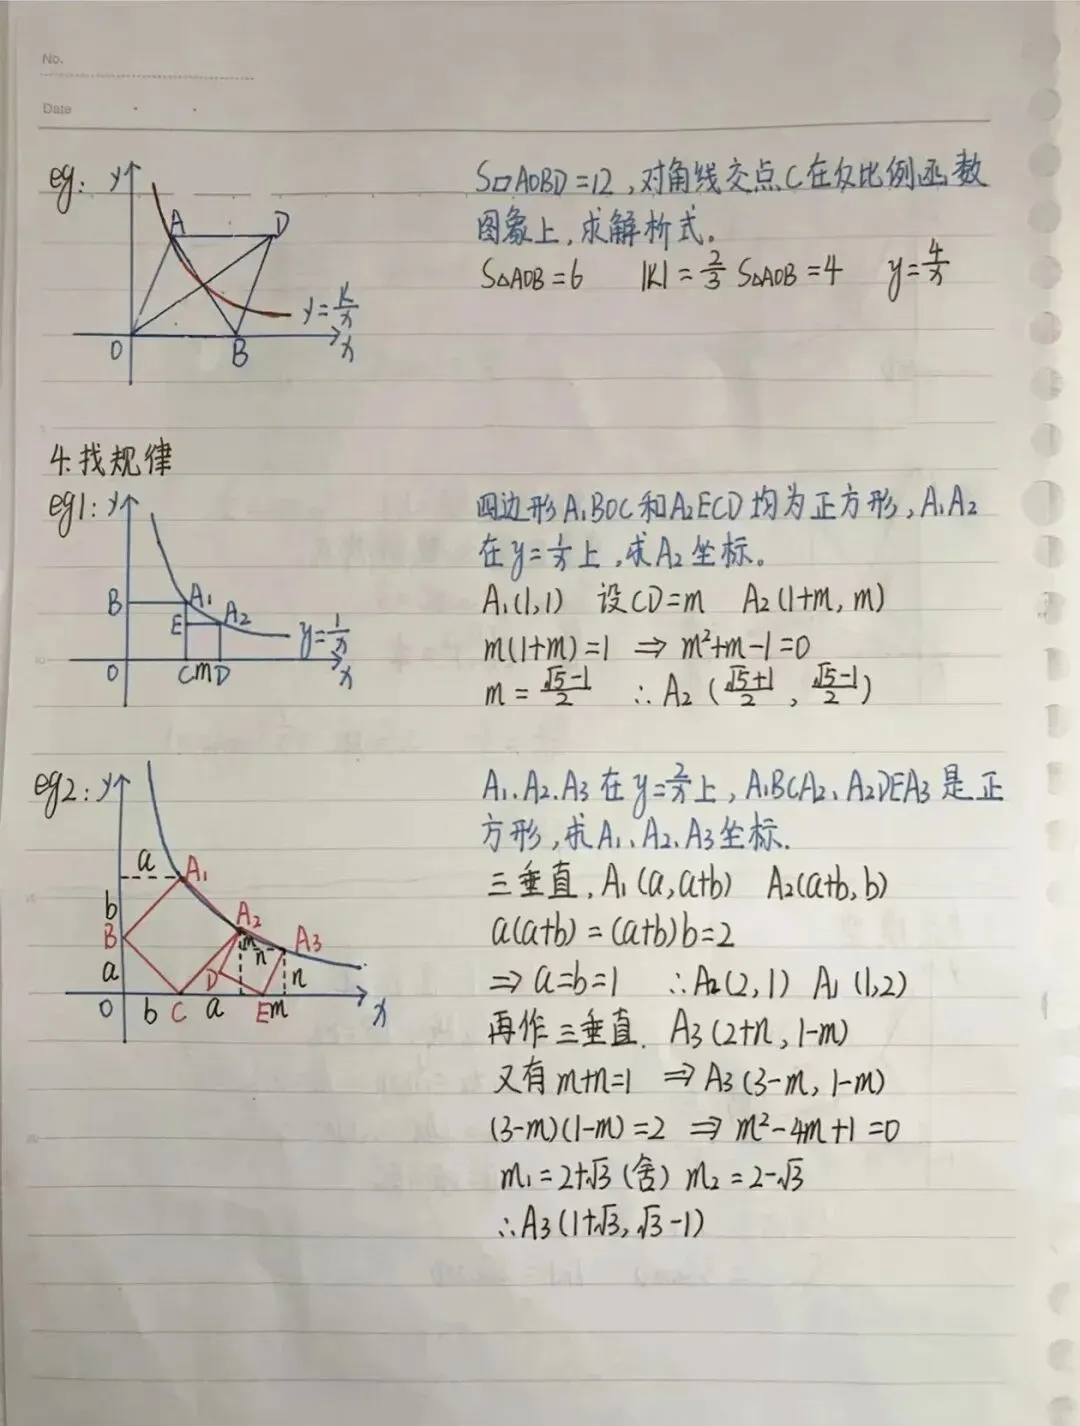 No.
Date
eg:
y
A
D
y=k/x
O
B
x
S▱AOBD=12,对角线交点C在反比例函数
图象上,求解析式。
S△AOB=6 |K|=2/3 S△AOB=4 y=4/x
4.找规律
eg1:
y
B
A₁
E
A₂
y=1/x
O
C
m
D
x
四边形A₁BOC和A₂ECD均为正方形,A₁A₂
在y=1/x上,求A₂坐标。
A₁(1,1) 设CD=m A₂(1+m, m)
m(1+m)=1 ⇒ m²+m-1=0
m=(√5-1)/2 ∴A₂((√5+1)/2, (√5-1)/2)
eg2:
y
a
A₁
b
B
A₂
m
n
A₃
a
D
n
O
b
C
a
E
m
x
A₁、A₂、A₃在y=2/x上,A₁BCA₂、A₂DEA₃是正
方形,求A₁、A₂、A₃坐标.
三垂直,A₁(a,a+b) A₂(a+b,b)
a(a+b)=(a+b)b=2
⇒a=b=1 ∴A₂(2,1) A₁(1,2)
再作三垂直. A₃(2+n, 1-m)
又有m+n=1 ⇒A₃(3-m, 1-m)
(3-m)(1-m)=2 ⇒ m²-4m+1=0
m₁=2+√3(舍) m₂=2-√3
∴A₃(1+√3, √3-1)